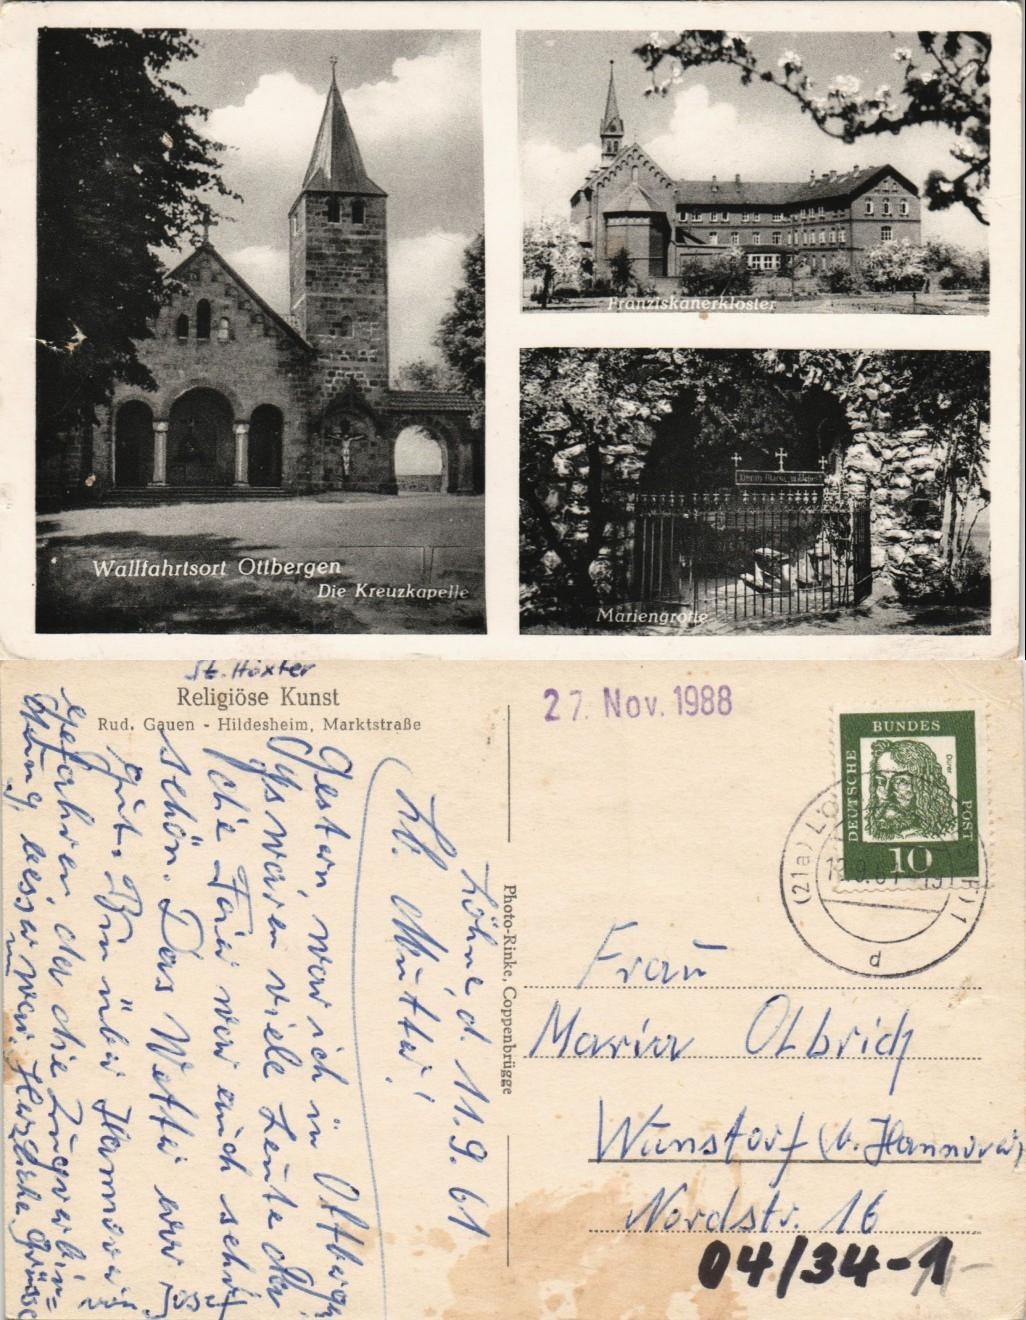 Franziskanerkloster
Wallfahrtsort Ottbergen
Die Kreuzkapelle
Mariengrotte
St. Höxter
Religiöse Kunst
Rud. Gauen - Hildesheim, Marktstraße
27. Nov. 1988
DEUTSCHE
BUNDES
POST
Dürer
10
(21a) LÖ
d
Löhne, d. 11.9.61
Lb. Mutter!
Gestern war ich in Ottbergen
Es waren viele Leute da
Die Feier war auch sehr
schön. Das Wetter war
gut. Bin über Hannover
gefahren da die Zugverbin=
dung besser war. Herzliche Grüsse
von Josef
Photo-Rinke, Coppenbrügge
Frau
Maria Olbrich
Wunstorf (b. Hannover)
Nordstr. 16
04/34-1